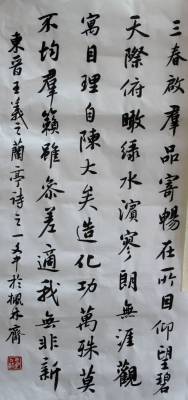 三春啟羣品寄暢在所因仰望碧
天際俯瞰绿水濱寥朗無涯觀
寓目理自陳大矣造化功萬殊莫
不均羣籟雖參差適我無非新
東晉王羲之蘭亭詩之一文中於楓林齋